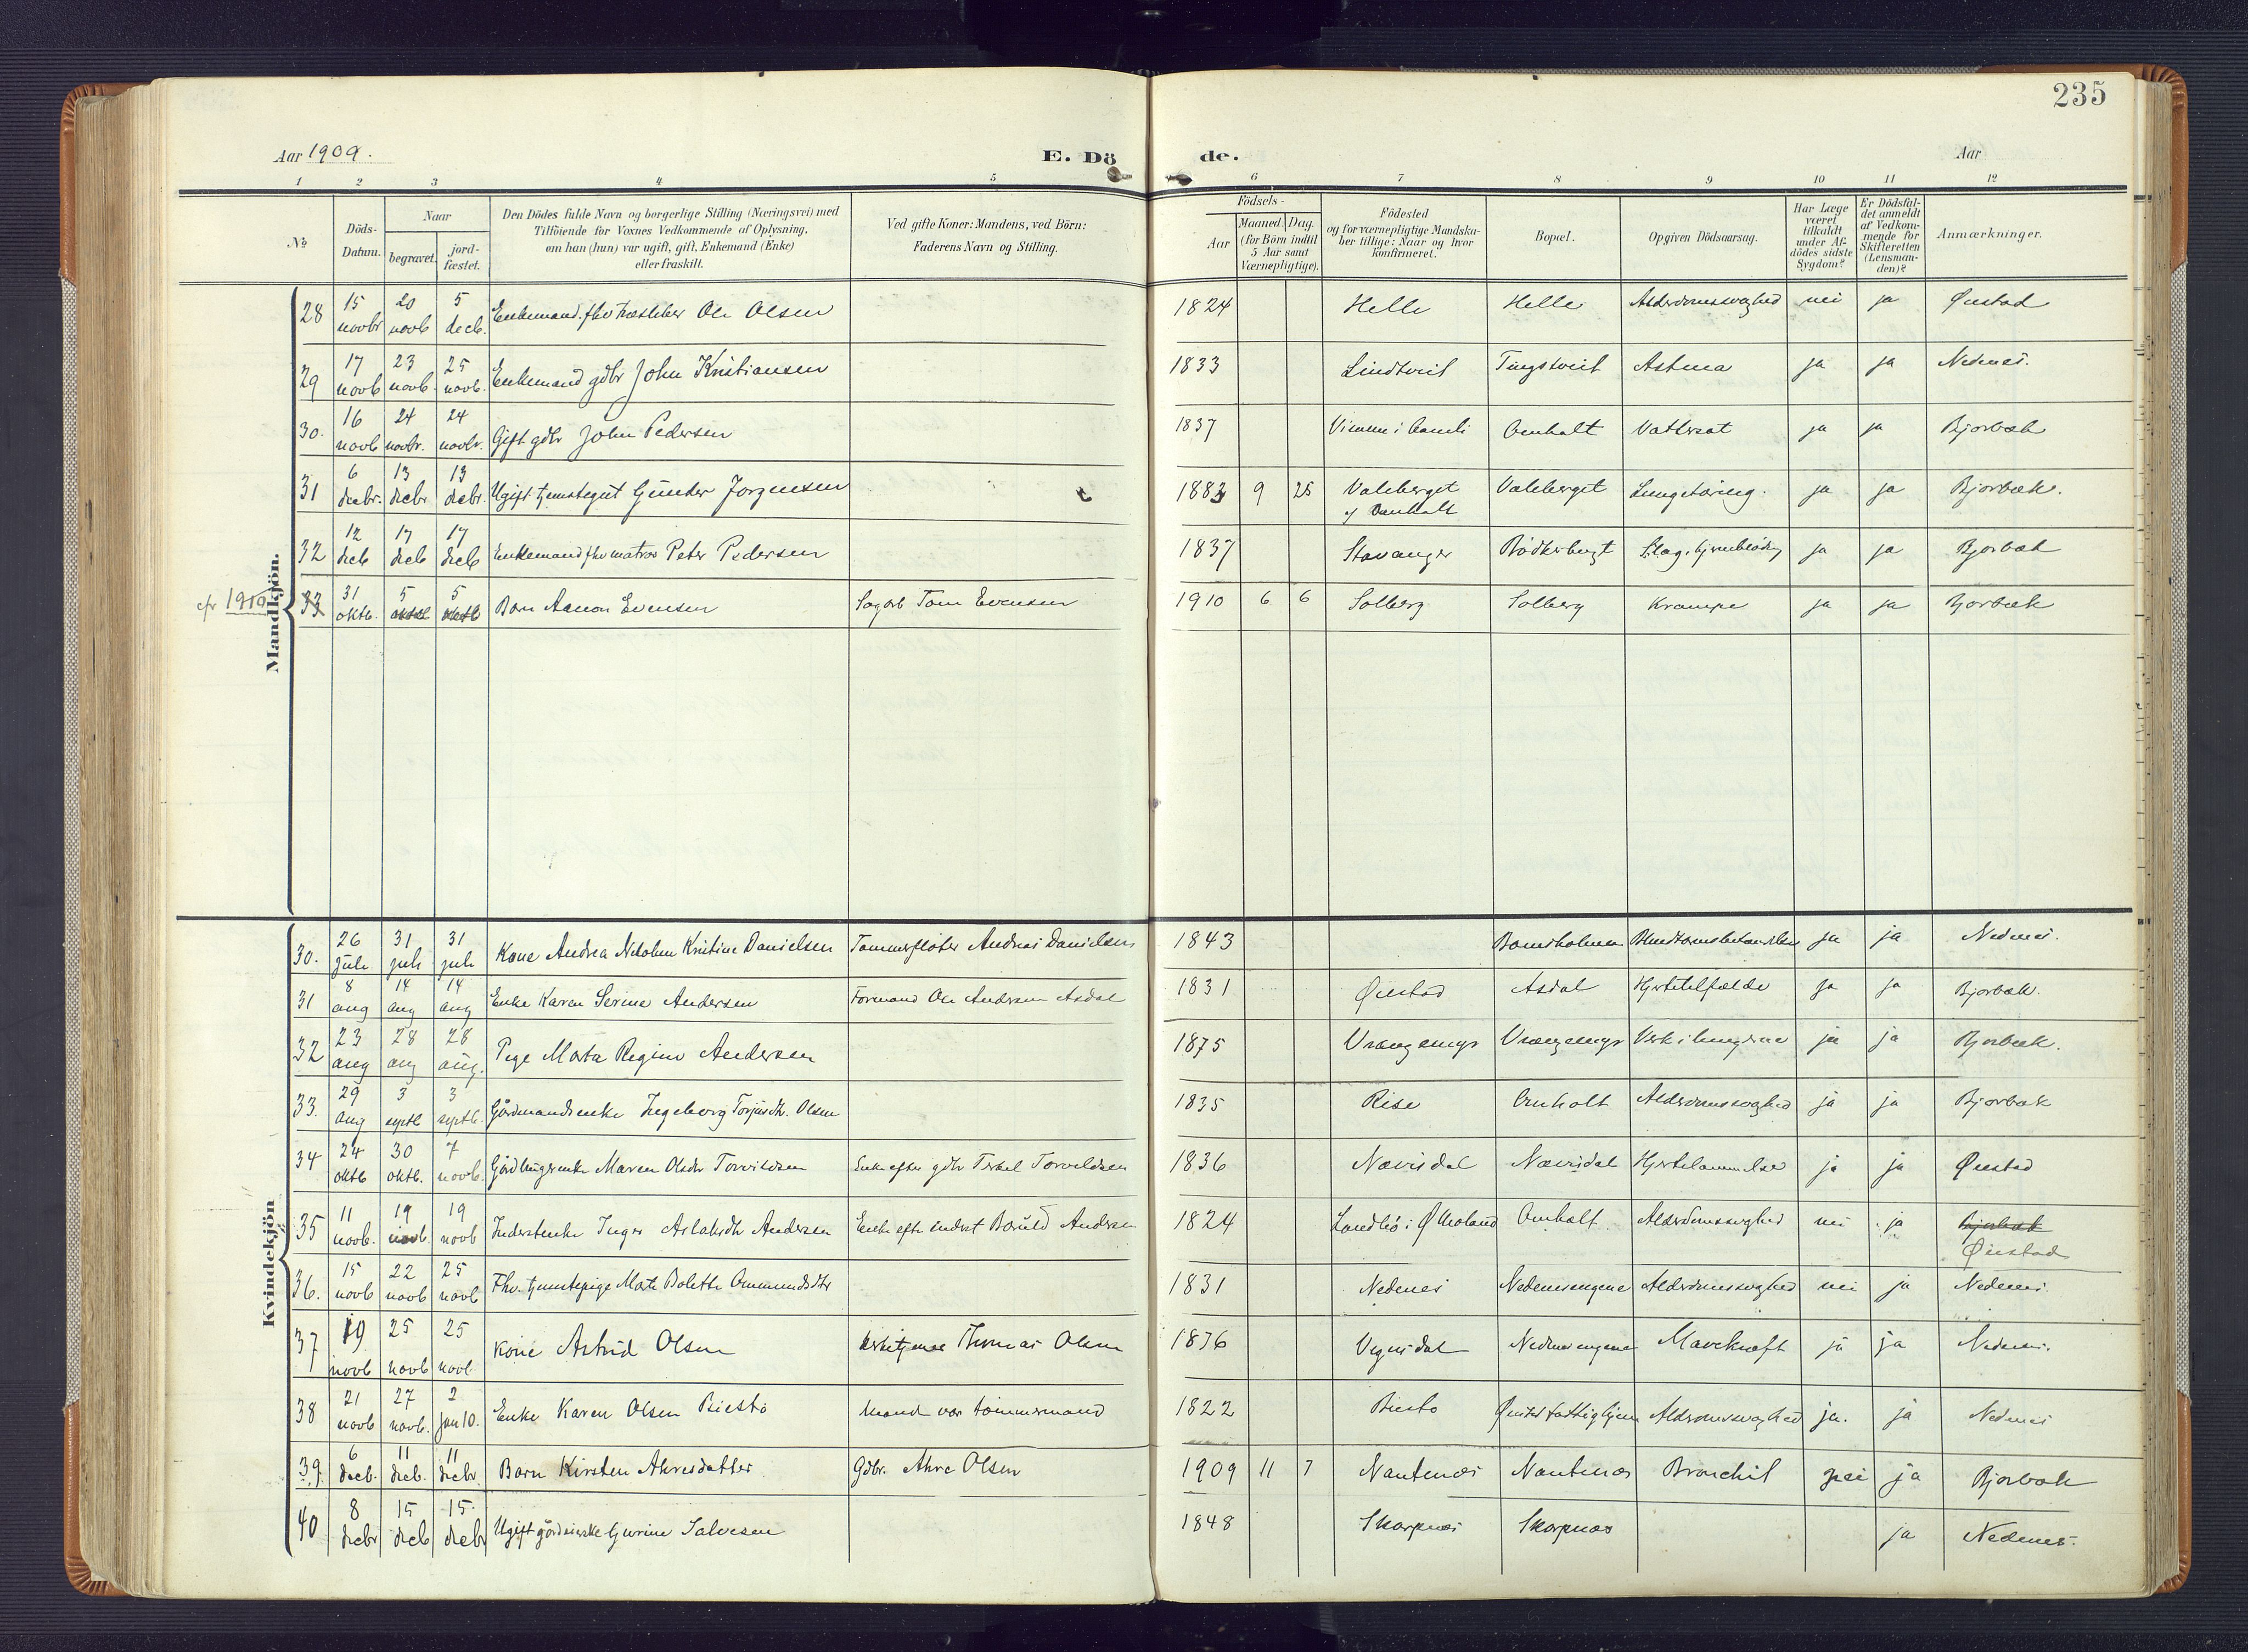 235
Aar 1909.
E. Döde.
Aar
1 2 3 4 5 6 7 8 9 10 11 12
№
Döds-Datum.
Naar
begravet.
jord-fæstet.
Den Dödes fulde Navn og borgerlige Stilling (Næringsvei) med
Tilföiende for Voxnes Vedkommende af Oplysning,
om han (hun) var ugift, gift, Enkemand (Enke)
eller fraskilt.
Ved gifte Koner: Mandens, ved Börn:
Faderens Navn og Stilling.
Födsels-
Aar
Maaned. Dag.
(for Börn indtil
5 Aar samt
Værnepligtige).
Födested
og for værnepligtige Mandska-
ber tillige: Naar og hvor
konfirmeret.
Bopæl.
Opgiven Dödsaarsag.
Har Læge
været
tilkaldt
under Af-
dödes sidste
Sygdom?
Er Dödsfal-
det anmeldt
af Vedkom-
mende for
Skifteretten
(Lensman-
den)?
Anmærkninger.
Mandkjön.
28 15 novbr 20 novb 5 decb. Enkemand. fhv Ole Olsen 1824 Helle Helle Alderdomssvaghed nei ja Øiestad
29 17 novb 23 novb. 25 novb. Enkemand gdbr John Kristiansen 1833 Lindtveit Tingstveit Astma ja ja Nedenes.
30. 16 novb 24 novbr. 24 novbr. Gift gdbr John Pedersen 1837 Vimme i Aamli Omholt Vattersot ja ja Bjorbæk
31 6 decbr. 13 decbr 13 decbr. Ugift tjenestegut Gunder Jorgensen 1883 9 25 Valeberget Valeberget Lungetæring. ja ja Bjorbæk.
32 12 decb 17 decb 17 decb Enkemand fhv matros Peter Pedersen 1837 Stavanger Bödkerbugt Slag. hjerneblødn ja ja Bjorbæk
cfr 1910 33 31 oktb. 5 5 Barn Aanon Evensen Sagarb Tom Evensen 1910 6 6 Solberg Solberg Krampe ja ja Bjorbæk
Kvindekjön
30. 26 juli 31 juli 31 juli Kone Andrea Nikoline Kristine Danielsen Tømmerfløter Andreas Danielsen 1843 Bomsholmen ja ja Nedenes.
31 8 aug 14 aug 14 aug Enke Karen Serine Andersen Formand Ole Andersen Asdal 1831 Øiestad Asdal Hjertetilfælde ja ja Bjorbæk.
32 23 aug 28 aug 28 aug. Pige Marta Regine Andersen 1875 Vrængemyr Vrængemyr ja ja Bjorbæk.
33. 29 aug 3 septb 3 septb. Gårdmandsenke Ingeborg Torjusdtr. Olsen 1835 Rise Omholt Alderdomssvaghed ja ja Bjorbæk
34 24 oktb 30 oktb. 7 novb. Gårdbrugerenke Maren Olsdtr Torvildsen Enke efter gdbr Terkel Torvildsen 1836 Nævisdal Nævisdal Hjertelammelse ja ja Øiestad
35 11 novb. 19 novb. 19 novb Inderstenke Inger Aslaksdtr Andersen Enke efter inderst Andersen 1824 Landbö i Ø Moland Omholt Alderdomssvaghed nei ja Bjorbæk
Øiestad
36. 15 novb 22 novb 25 novb Fhv. tjenestepige Mate Bolette Ommundsdtr 1831 Nedenes Nedenesengene Alderdomssvaghed nei ja Nedenes
37 19 novb 25 novb 25 novb. Kone Astrid Olsen Kirketjener Thomas Olsen 1836 Vegusdal Nedenesengene Mavekræft ja ja Nedenes.
38 21 novb 27 novb. 2 jan 10. Enke Karen Olsen Biestö Mand var tömmermand 1822 Biestö Øiestad fattighjem Alderdomssvaghed ja. ja Nedenes
39. 6 decb. 11 decb. 11 decbr Barn Kirsten Ahresdatter Gdbr. Ahre Olsen 1909 11 7 Nautenes Nautenes Bronchit nei ja Bjorbæk
40 8 decbr 15 decb 15 decbr Ugift Gurine Salvesen 1848 Skarpnes Skarpnes ja Nedenes.